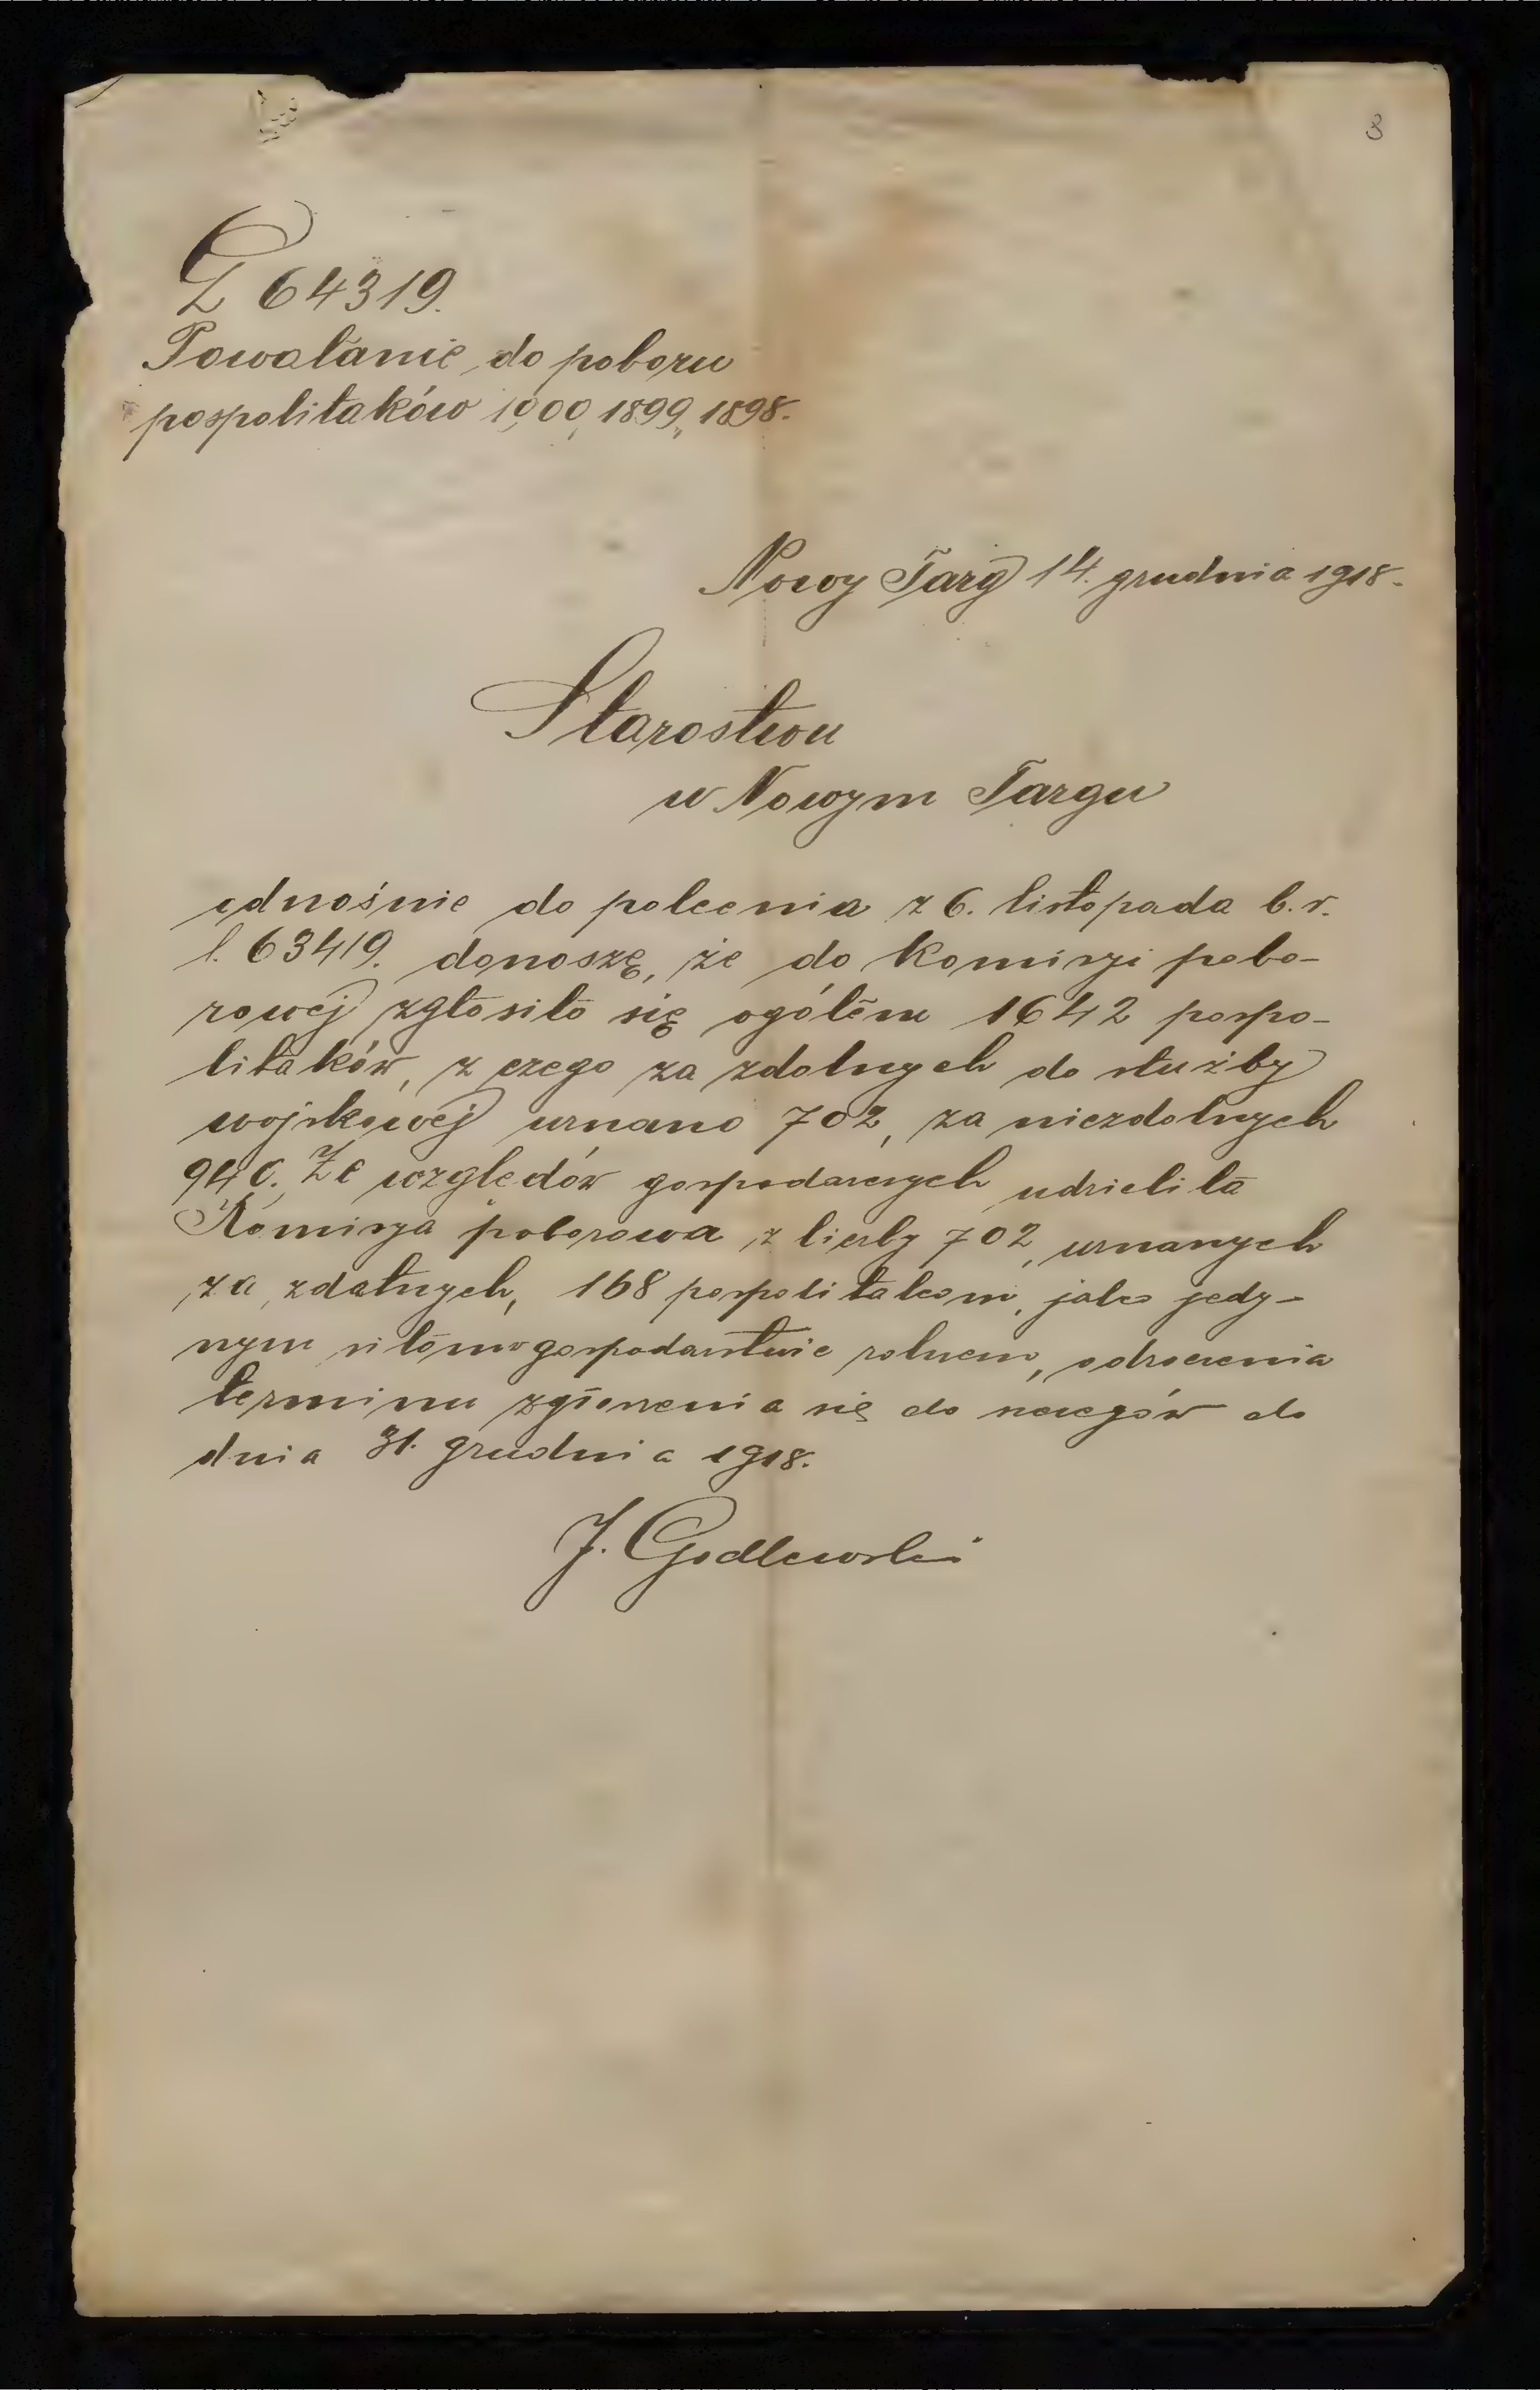 8
L 64319.
Powołanie do poboru
pospolitaków 1900, 1899, 1898.
Nowy Targ 14. grudnia 1918.
Starostwu
w Nowym Targu
odnośnie do polecenia z 6. listopada b.r.
l. 63419. donoszę, że do Komisyi pobo-
rowej zgłosiło się ogółem 1642 pospo-
litaków, z czego za zdolnych do służby
wojskowej uznano 702, za niezdolnych
940. Ze względów gospodarczych udzieliła
Komisya poborowa z liczby 702, uznanych
za zdatnych, 168 pospolitakom, jako jedy-
nym siłom w gospodarstwie rolnem, odroczenia
terminu zgłoszenia się do szeregów do
dnia 31. grudnia 1918.
J. Godlewski